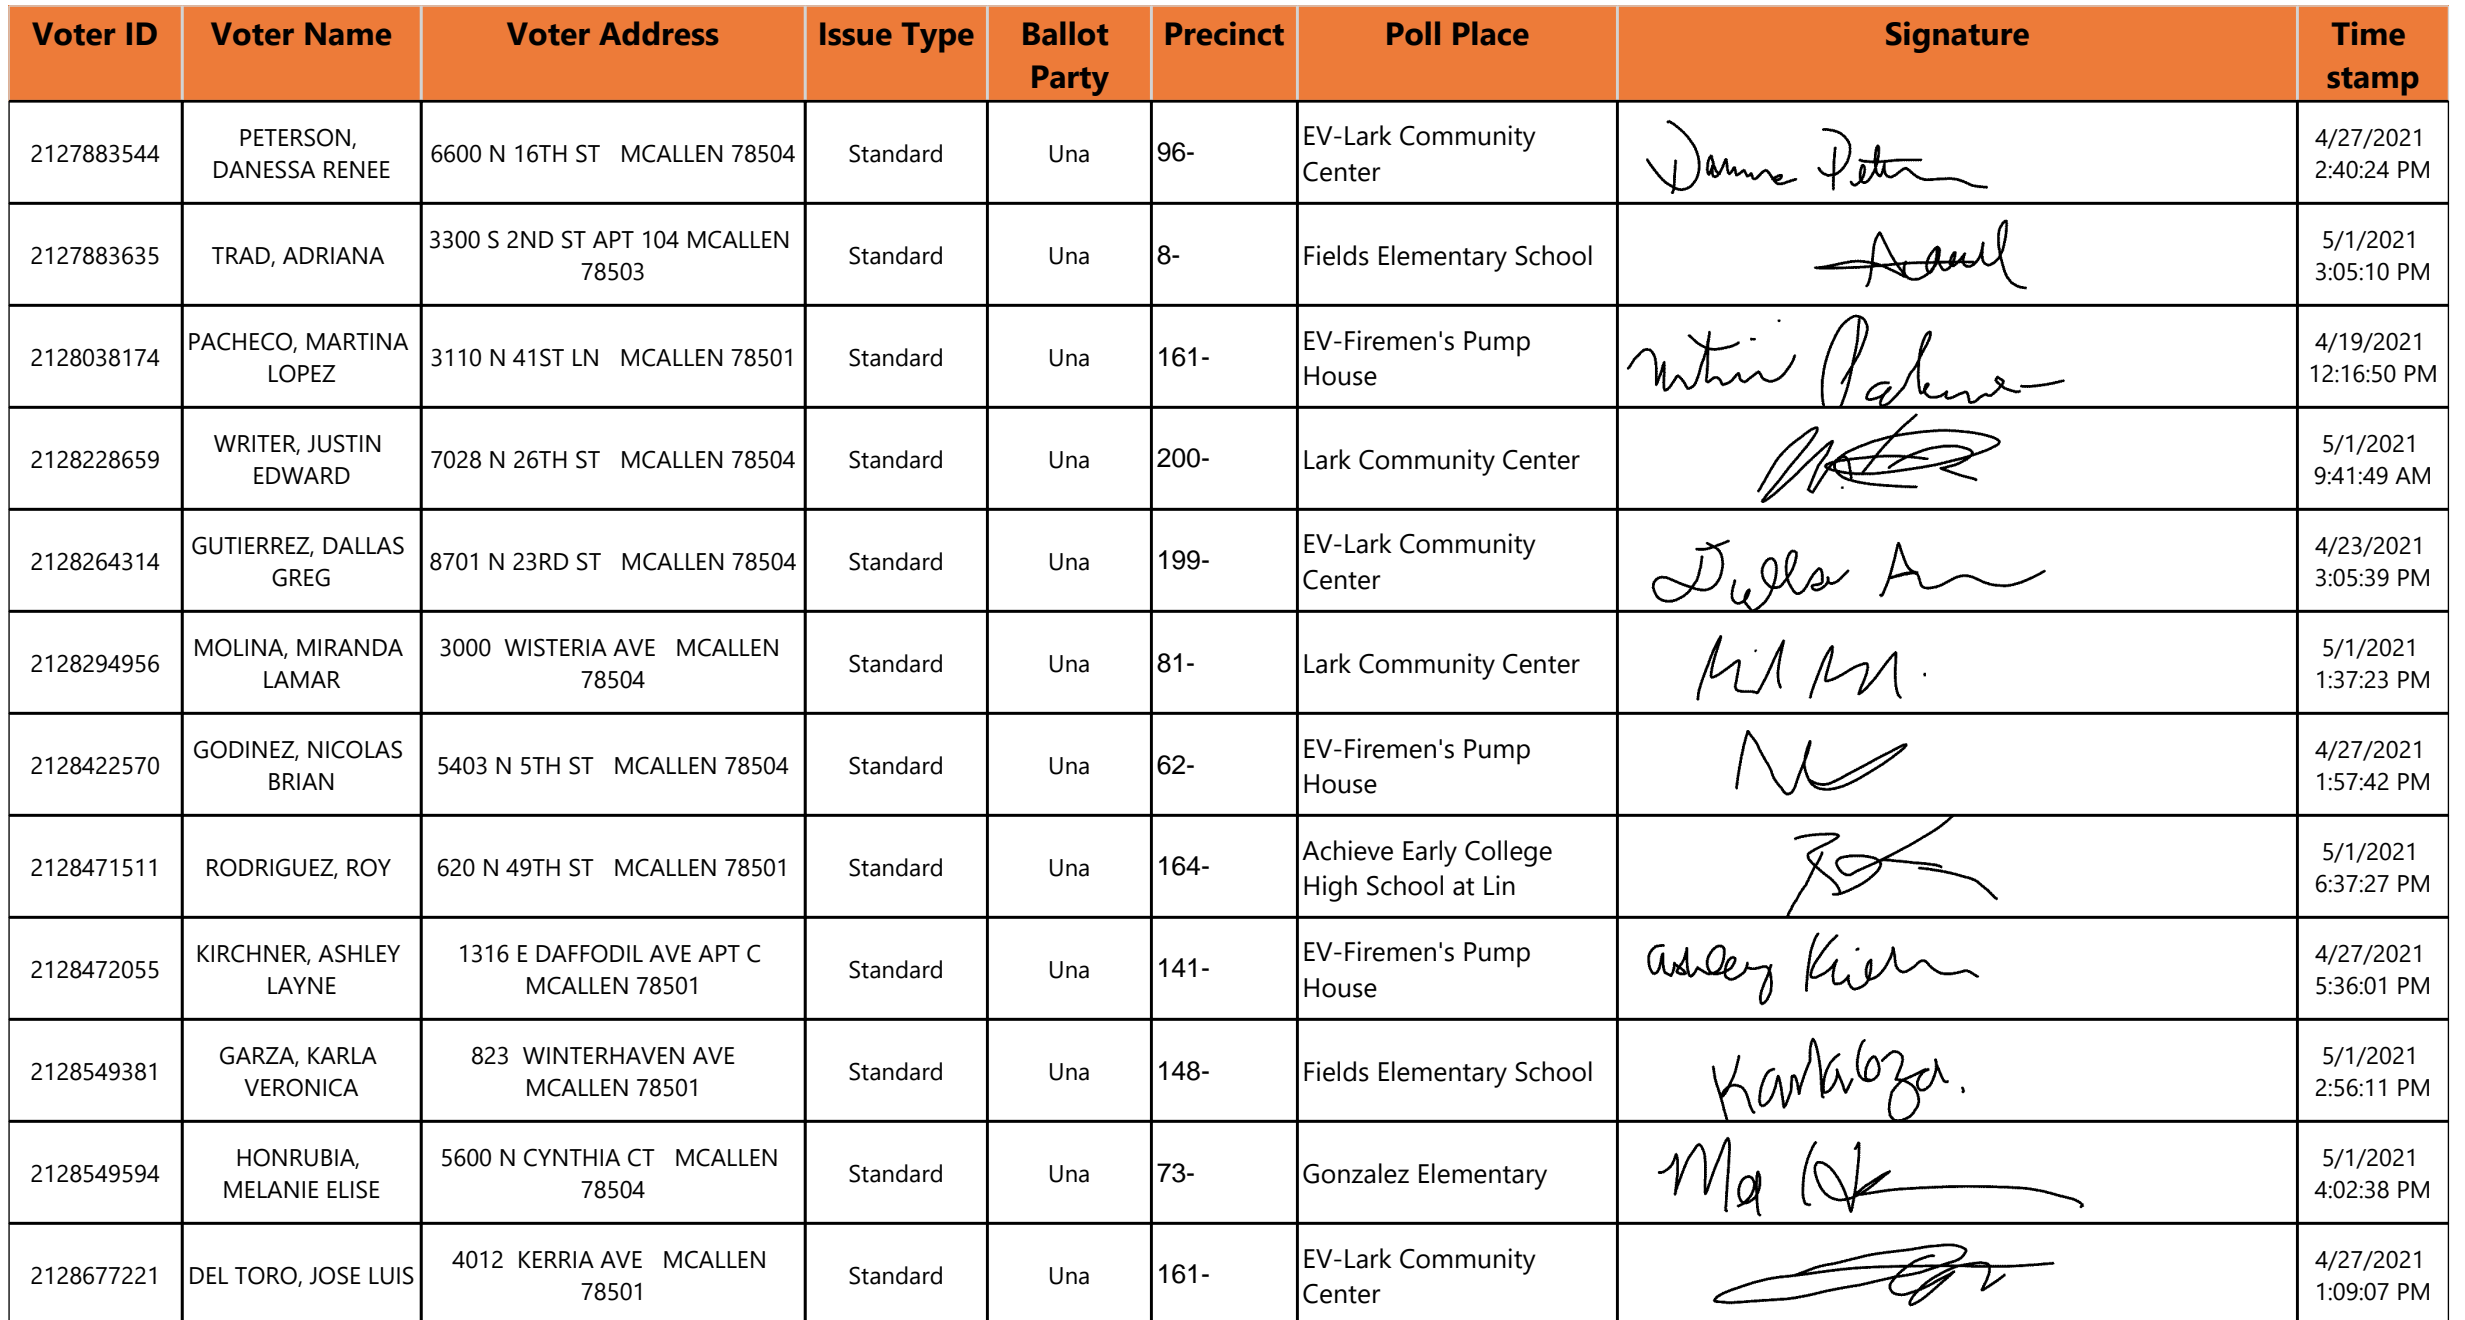 Voter ID Voter Name Voter Address Issue Type Ballot Party Precinct Poll Place Signature Time stamp
2127883544 PETERSON, DANESSA RENEE 6600 N 16TH ST MCALLEN 78504 Standard Una 96- EV-Lark Community Center 4/27/2021 2:40:24 PM
2127883635 TRAD, ADRIANA 3300 S 2ND ST APT 104 MCALLEN 78503 Standard Una 8- Fields Elementary School 5/1/2021 3:05:10 PM
2128038174 PACHECO, MARTINA LOPEZ 3110 N 41ST LN MCALLEN 78501 Standard Una 161- EV-Firemen's Pump House 4/19/2021 12:16:50 PM
2128228659 WRITER, JUSTIN EDWARD 7028 N 26TH ST MCALLEN 78504 Standard Una 200- Lark Community Center 5/1/2021 9:41:49 AM
2128264314 GUTIERREZ, DALLAS GREG 8701 N 23RD ST MCALLEN 78504 Standard Una 199- EV-Lark Community Center 4/23/2021 3:05:39 PM
2128294956 MOLINA, MIRANDA LAMAR 3000 WISTERIA AVE MCALLEN 78504 Standard Una 81- Lark Community Center 5/1/2021 1:37:23 PM
2128422570 GODINEZ, NICOLAS BRIAN 5403 N 5TH ST MCALLEN 78504 Standard Una 62- EV-Firemen's Pump House 4/27/2021 1:57:42 PM
2128471511 RODRIGUEZ, ROY 620 N 49TH ST MCALLEN 78501 Standard Una 164- Achieve Early College High School at Lin 5/1/2021 6:37:27 PM
2128472055 KIRCHNER, ASHLEY LAYNE 1316 E DAFFODIL AVE APT C MCALLEN 78501 Standard Una 141- EV-Firemen's Pump House 4/27/2021 5:36:01 PM
2128549381 GARZA, KARLA VERONICA 823 WINTERHAVEN AVE MCALLEN 78501 Standard Una 148- Fields Elementary School 5/1/2021 2:56:11 PM
2128549594 HONRUBIA, MELANIE ELISE 5600 N CYNTHIA CT MCALLEN 78504 Standard Una 73- Gonzalez Elementary 5/1/2021 4:02:38 PM
2128677221 DEL TORO, JOSE LUIS 4012 KERRIA AVE MCALLEN 78501 Standard Una 161- EV-Lark Community Center 4/27/2021 1:09:07 PM